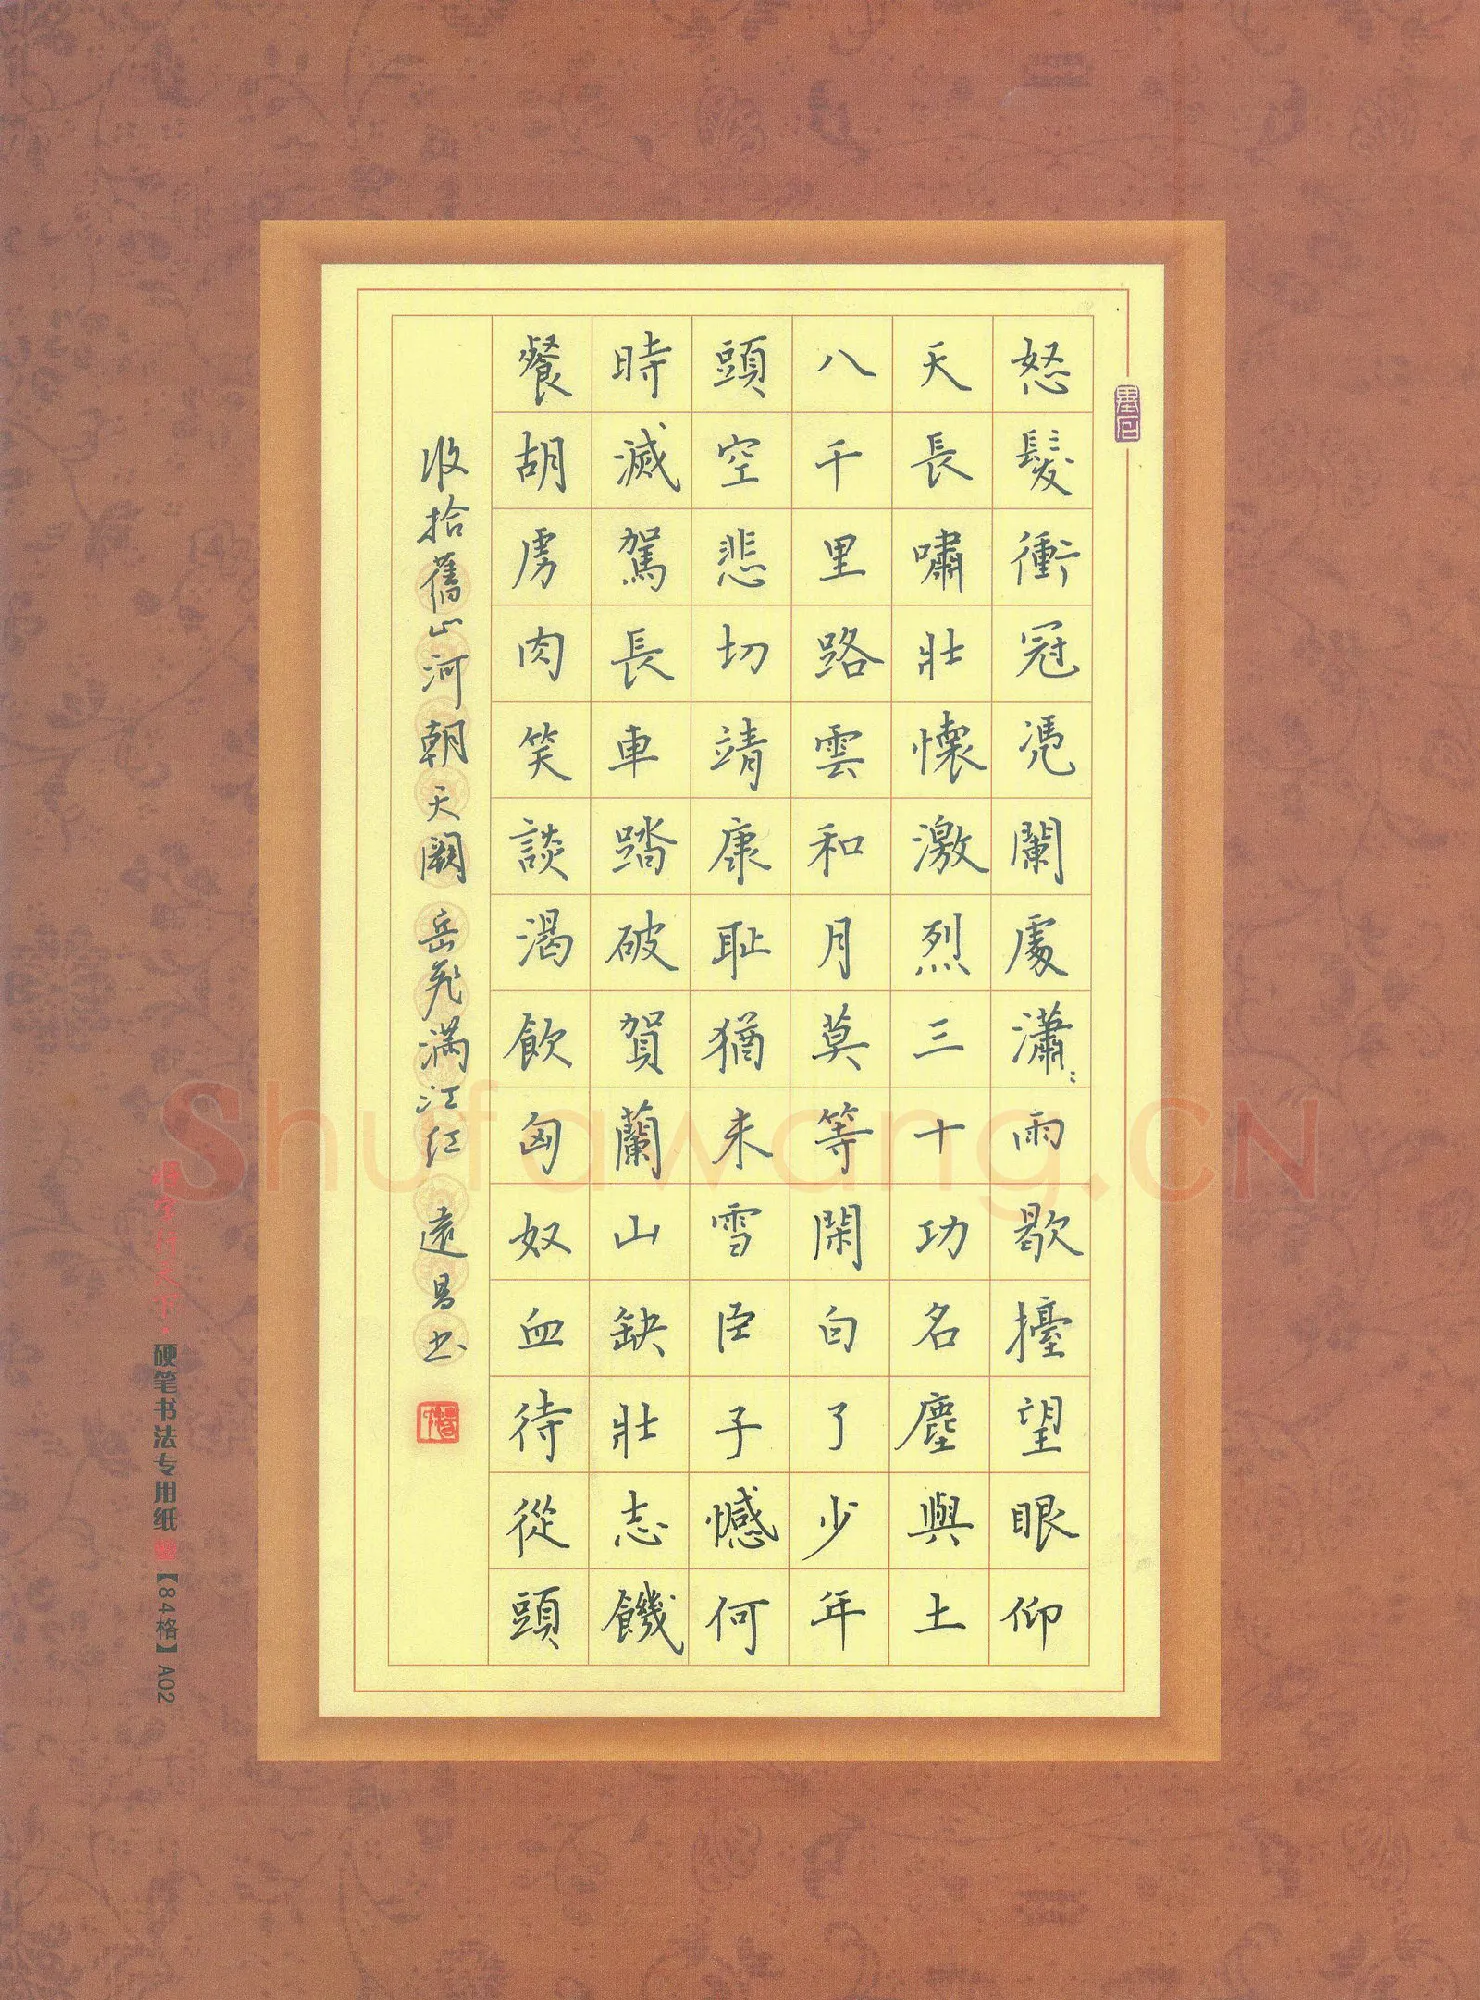 怒髮衝冠凴闌處瀟〻雨歇擡望眼仰
天長嘯壯懷激烈三十功名塵與土
八千里路雲和月莫等閑白了少年
頭空悲切靖康耻猶未雪臣子憾何
時滅駕長車踏破賀蘭山缺壯志饑
餐胡虜肉笑談渴飲匈奴血待從頭
收拾舊山河朝天闕 岳飛滿江紅 遠昌书
硬笔书法专用纸【84格】A02
Shufawang.CN